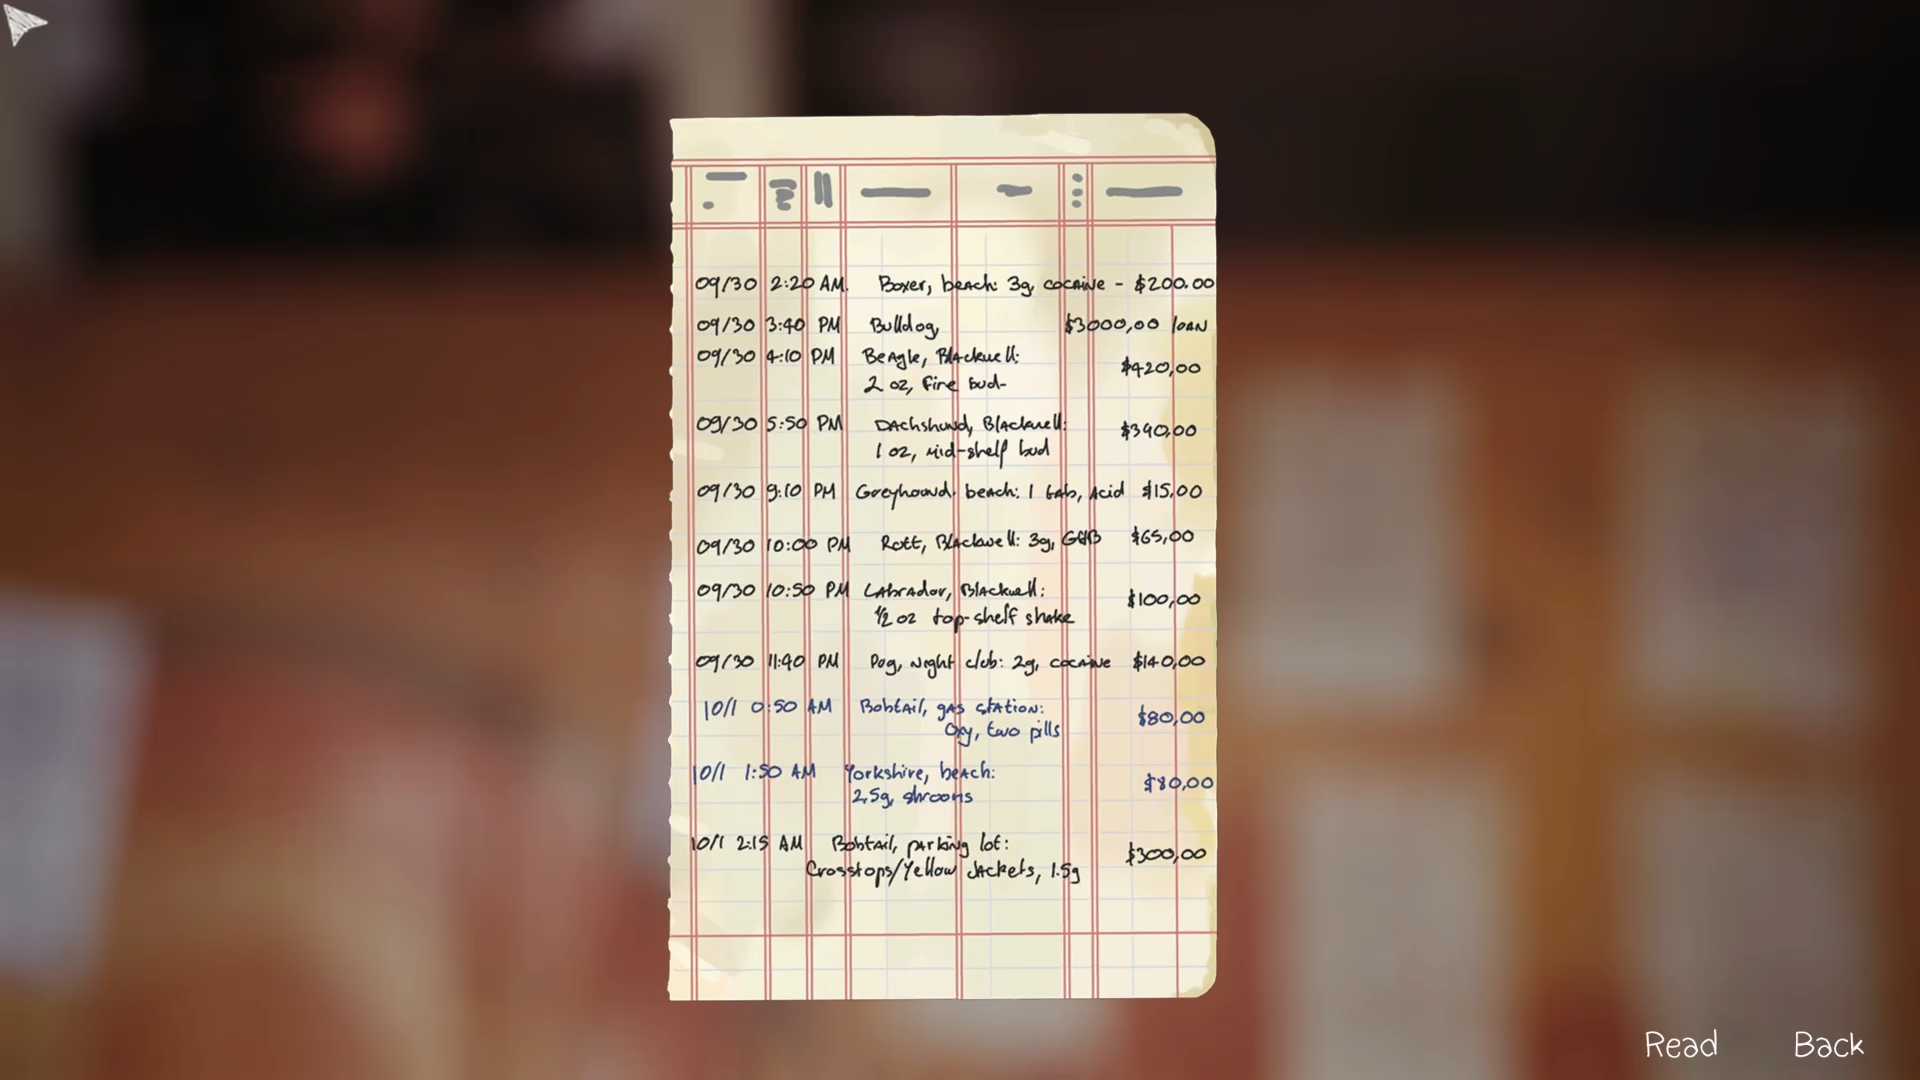 09/30 2:20 AM. Boxer, beach: 3g, cocaine - $200.00
09/30 3:40 PM Bulldog, $3000,00 loan
09/30 4:10 PM Beagle, Blackwell:
2 oz, fine bud- $420,00
09/30 5:50 PM Dachshund, Blackwell: $340,00
1 oz, mid-shelf bud
09/30 9:10 PM Greyhound, beach: 1 tab, acid $15,00
09/30 10:00 PM Rott, Blackwell: 3g, GHB $65,00
09/30 10:50 PM Labrador, Blackwell: $100,00
1/2 oz top-shelf shake
09/30 11:40 PM Pog, night club: 2g, cocaine $140,00
10/1 0:50 AM Bobtail, gas station: $80,00
Oxy, two pills
10/1 1:50 AM Yorkshire, beach: $80,00
2,5g, shrooms
10/1 2:15 AM Bobtail, parking lot: $300,00
Crosstops/Yellow Jackets, 1.5g
Read Back